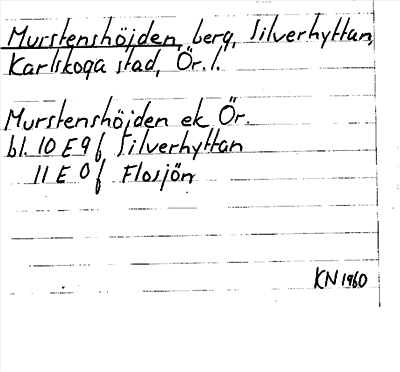 Murstenshöjden, berg, Silverhyttan,
Karlskoga stad, Ör. l.
Murstenshöjden ek Ör.
bl. 10 E 9 f Silverhyttan
11 E 0 f Flosjön
KN 1960